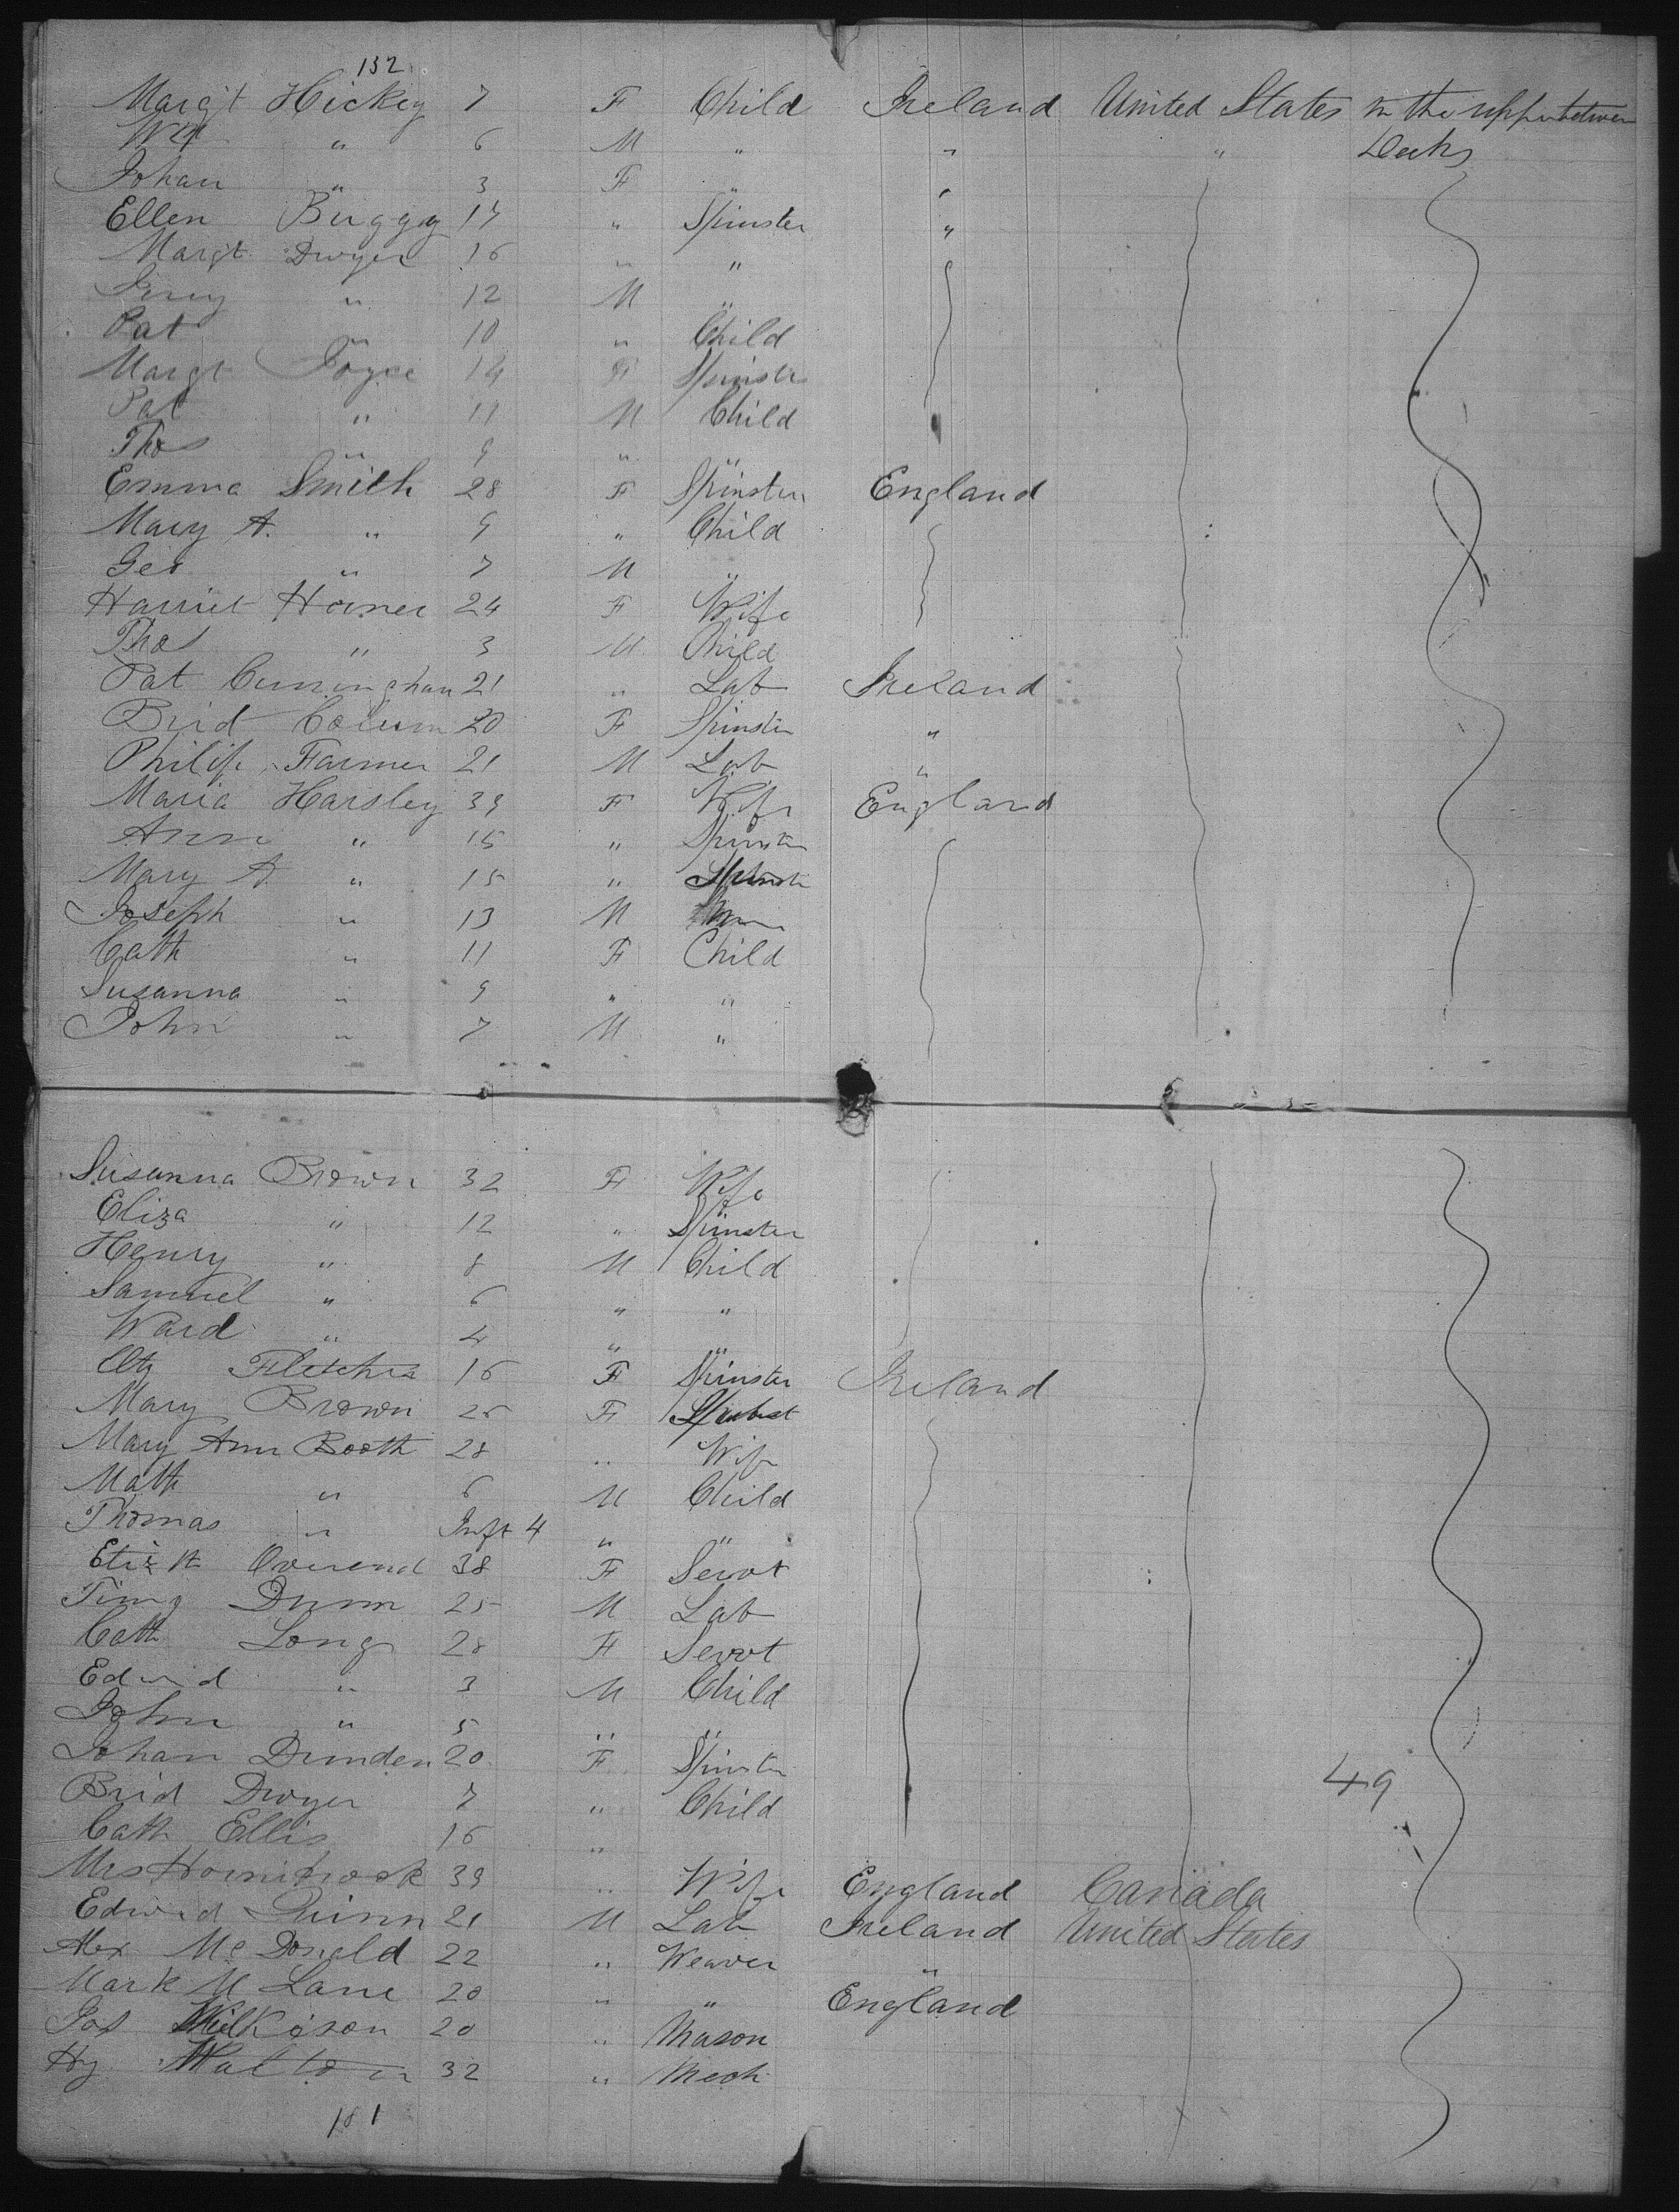 132
Margt Hickey 7 F Child Ireland United States In the upper between
Wm " 6 M " " " Decks
Johan " 3 F " "
Ellen Buggy 17 " Spinster "
Margt Dwyer 16 " "
" 12 M "
Pat " 10 " Child
Margt Joyce 14 F Spinster
Pat " 11 M Child
Thos " 9 " "
Emma Smith 28 F Spinster England
Mary A. " 9 " Child
Geo " 7 M "
Harriet Horner 24 F Wife
Thos " 3 M Child
Pat Cunningham 21 " Lab Ireland
Brid Colum 20 F Spinster "
Philip Farmer 21 M Lab "
Maria Harsley 39 F Wife England
Ann " 15 " Spinster
Mary A. " 15 " Spinster
Joseph " 13 M
Cath " 11 F Child
Susanna " 9 " "
John " 7 M "
Susanna Brown 32 F Wife
Eliza " 12 " Spinster
Henry " 8 M Child
Samuel " 6 " "
Ward " 4 " "
Fletcher 16 F Spinster Ireland
Mary Brown 25 F
Mary Ann Booth 28 " Wife
Math " 6 M Child
Thomas " Inft 4 " "
Eliz th Overend 38 F Servt
Timy Dunn 25 M Lab
Cath Long 28 F Servt
Edwd " 3 M Child
John " 5 " "
Johan Dunden 20 F Spinster
Brid Dwyer 7 " Child 49
Cath Ellis 16 "
Mrs Hornibrook 39 " Wife England Canada
Edwd Quinn 21 M Lab Ireland United States
Alex Mc Donald 22 " Weaver "
Mark M Lane 20 " " England
Jos Wilkison 20 " Mason
Hy Walton 32 " Mech
181